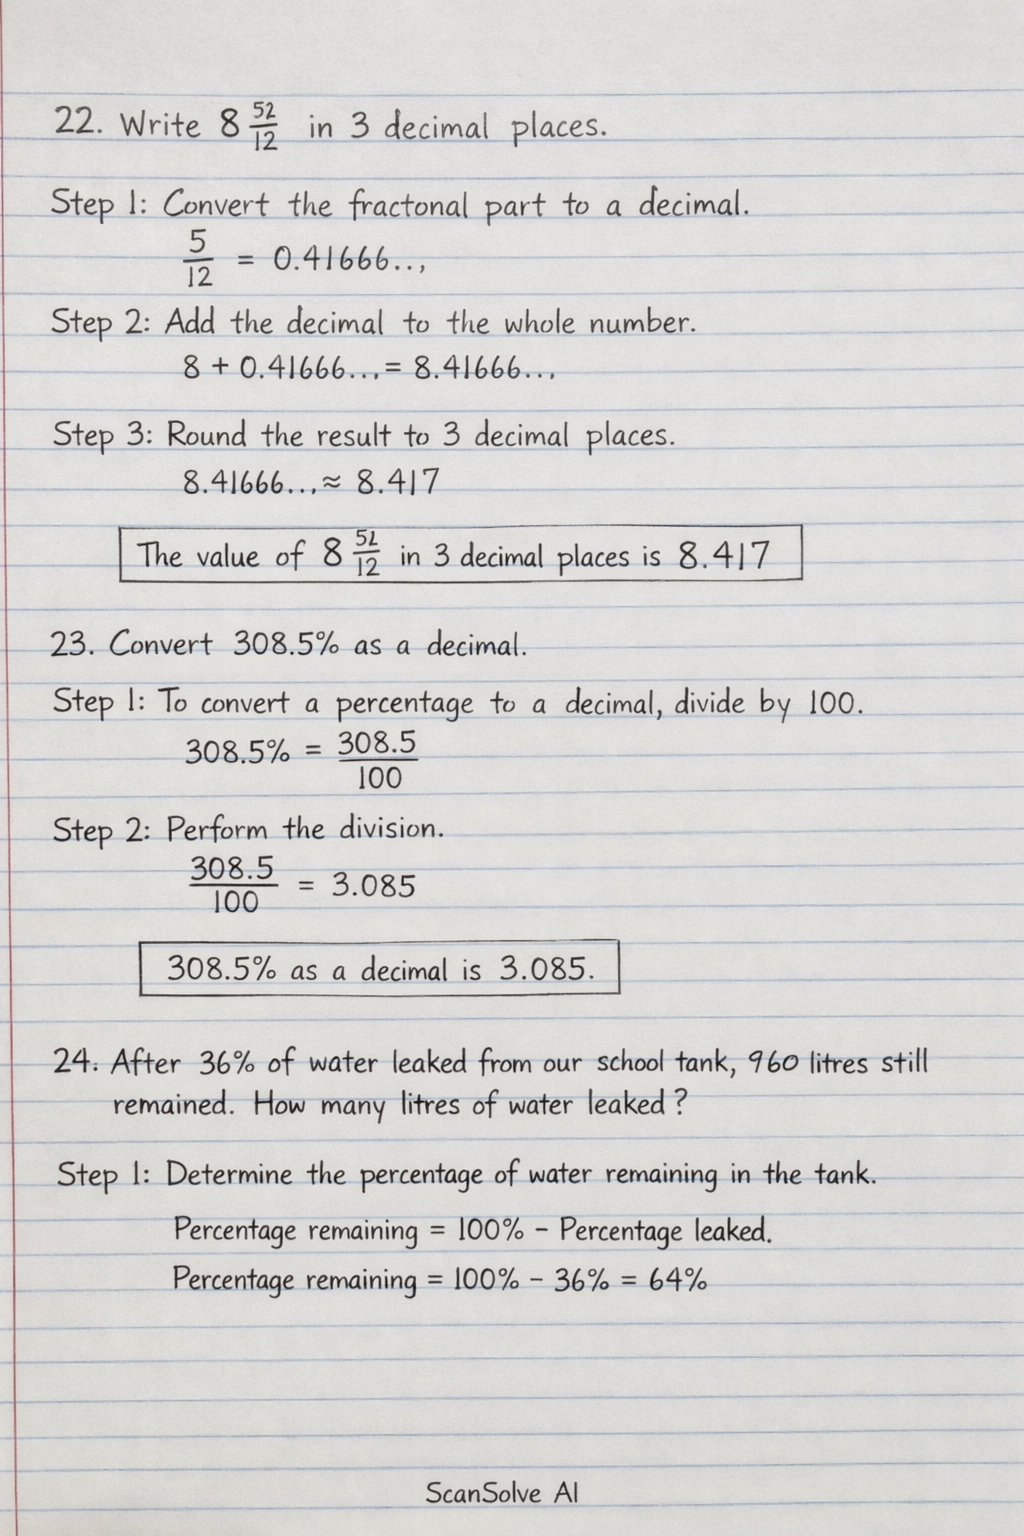 22. Write 8 52/12 in 3 decimal places.
Step 1: Convert the fractonal part to a decimal.
5/12 = 0.41666..,
Step 2: Add the decimal to the whole number.
8 + 0.41666... = 8.41666...
Step 3: Round the result to 3 decimal places.
8.41666... ≈ 8.417
The value of 8 52/12 in 3 decimal places is 8.417
23. Convert 308.5% as a decimal.
Step 1: To convert a percentage to a decimal, divide by 100.
308.5% = 308.5/100
Step 2: Perform the division.
308.5/100 = 3.085
308.5% as a decimal is 3.085.
24. After 36% of water leaked from our school tank, 960 litres still
remained. How many litres of water leaked?
Step 1: Determine the percentage of water remaining in the tank.
Percentage remaining = 100% - Percentage leaked.
Percentage remaining = 100% - 36% = 64%
ScanSolve AI